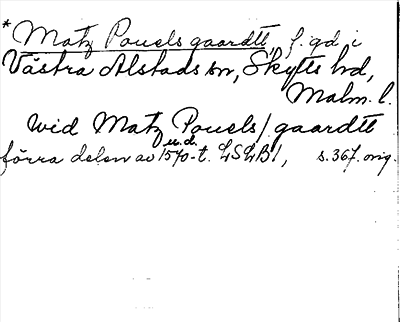 * Matz Pouels gaardtt, f. gd i
Västra Alstads sn, Skytts hd,
Malm. l.
wid Matz Pouels / gaardtt
u.d.
förra delen av 1570-t. LSLB 1, s. 367. orig.